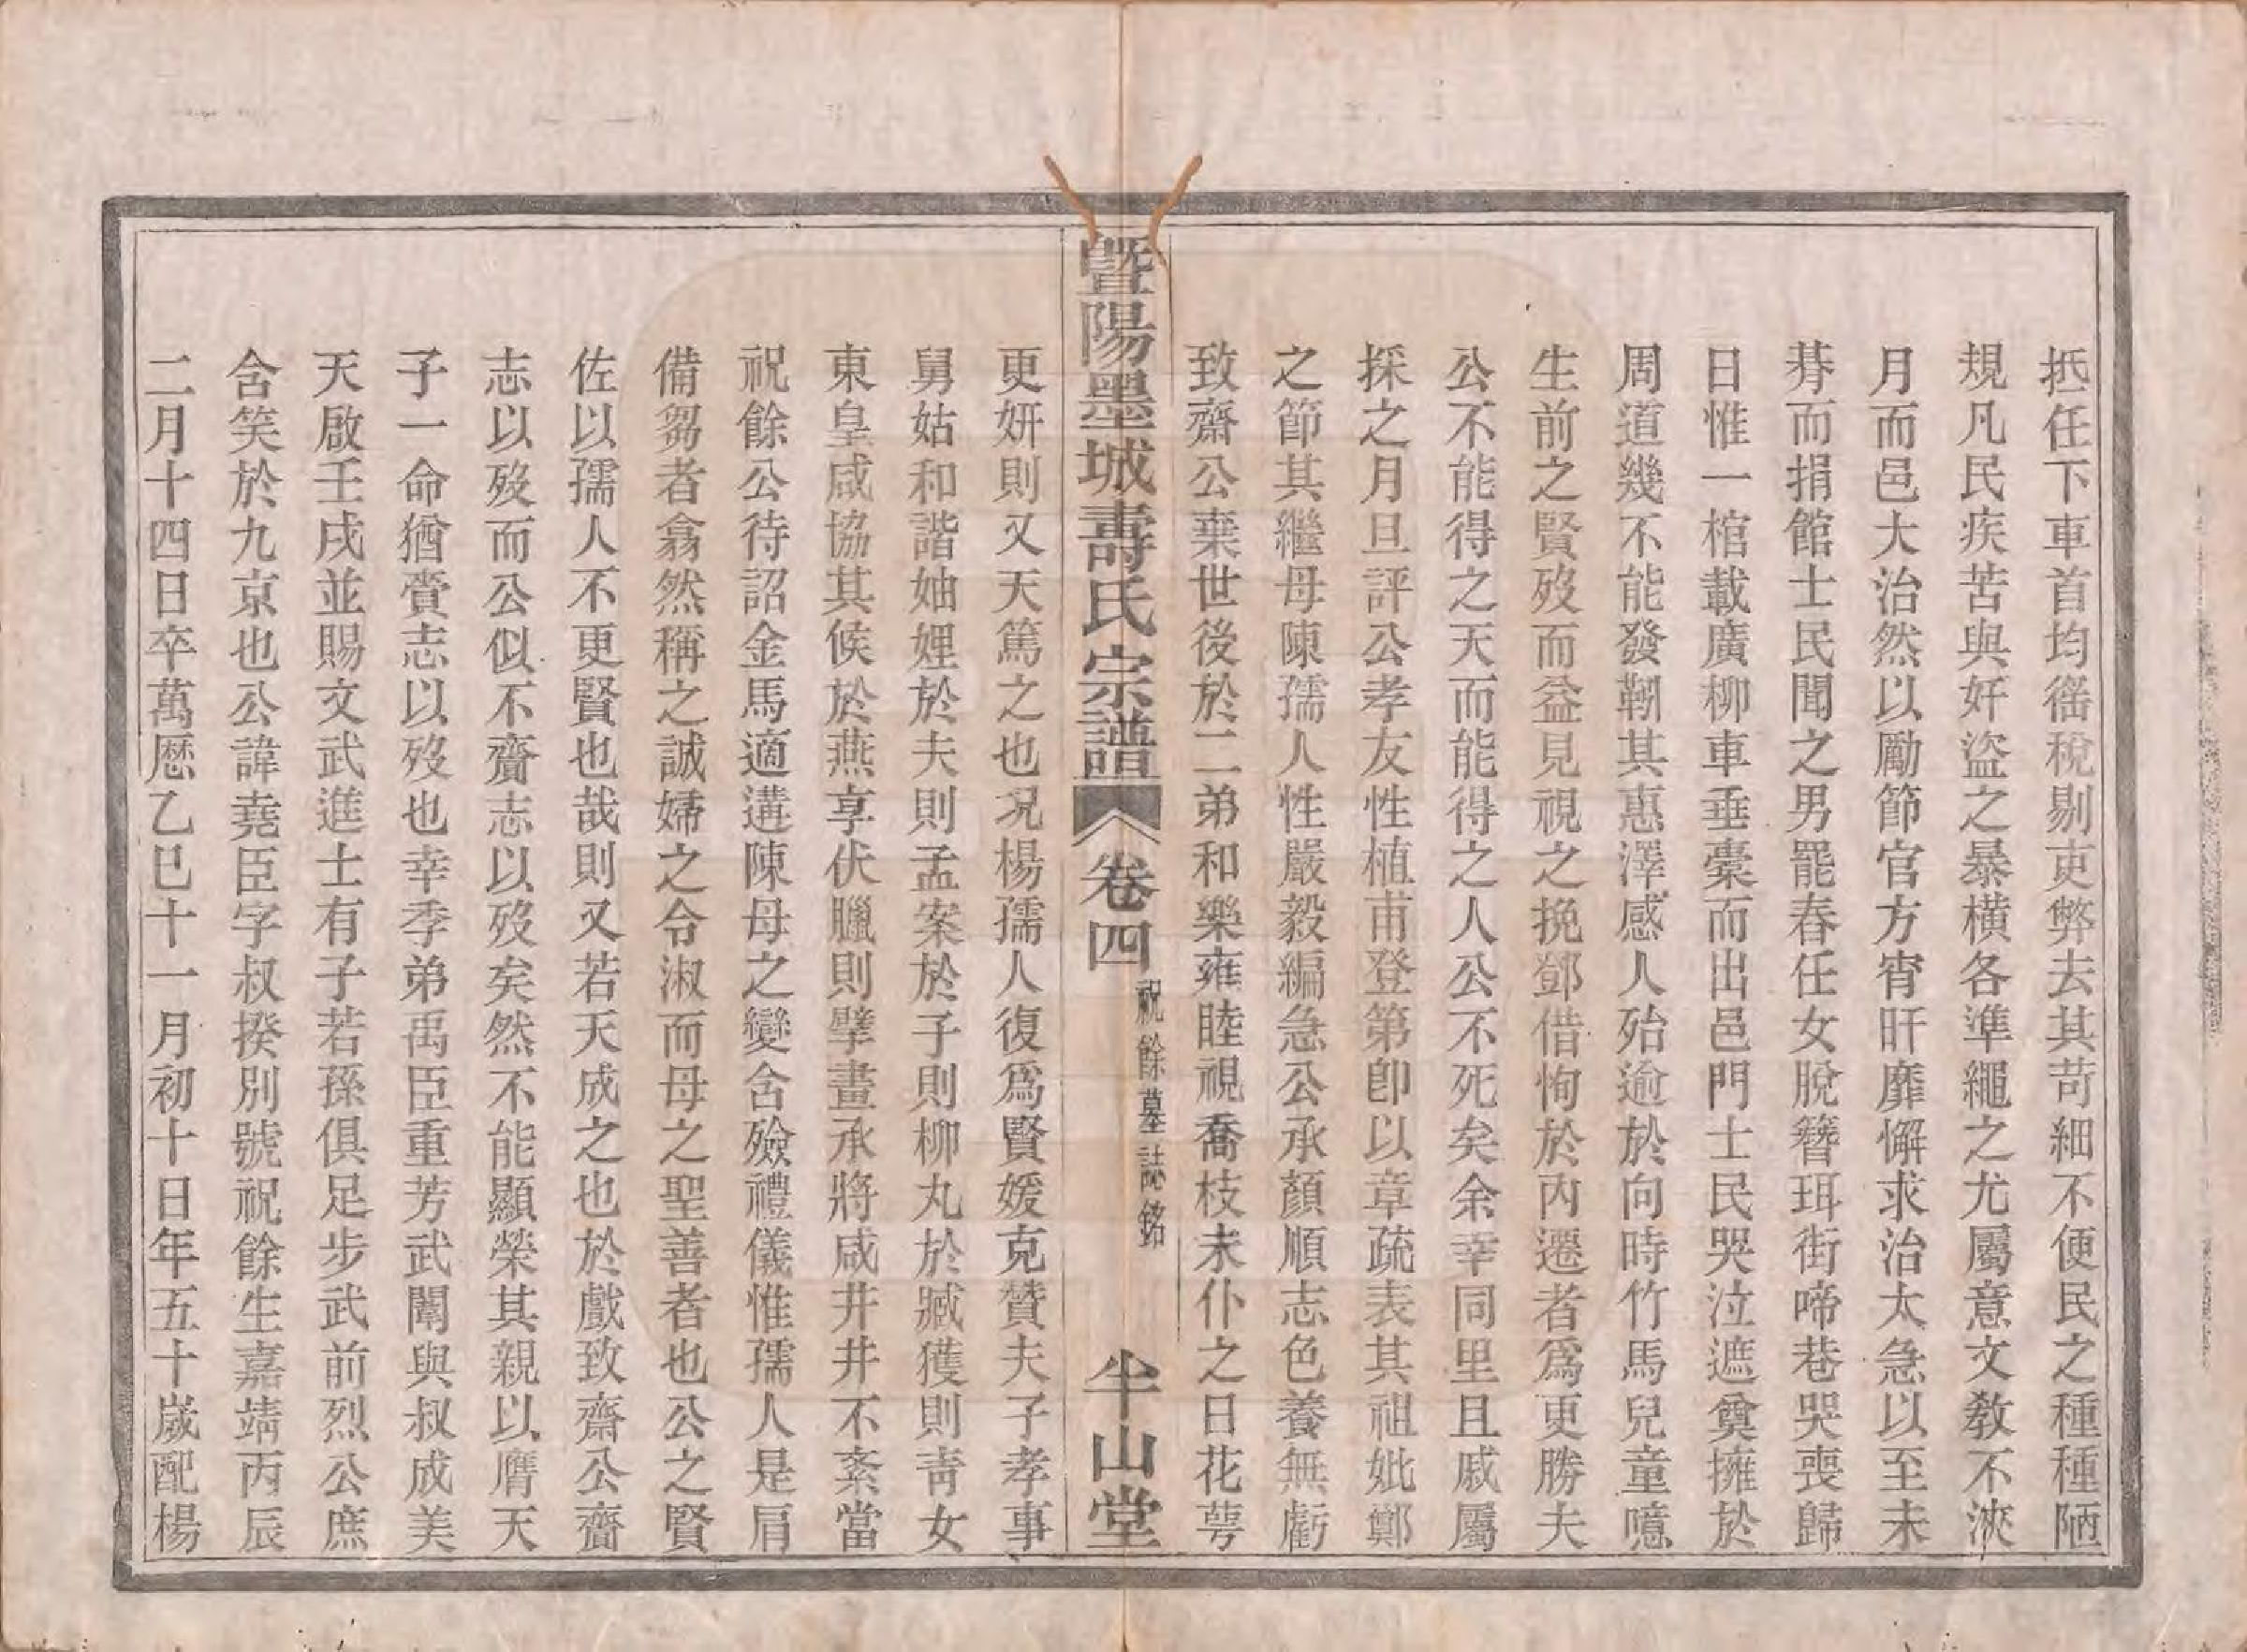 抵任下車首均徭稅剔吏弊去其苛細不便民之種種陋
規凡民疾苦與奸盜之暴橫各準繩之尤屬意文教不浹
月而邑大治然以勵節官方宵旰靡懈求治太急以至未
朞而捐館士民聞之男罷舂任女脫簪珥街啼巷哭喪歸
日惟一棺載廣柳車垂橐而出邑門士民哭泣遮奠擁於
周道幾不能發靷其惠澤感人殆逾於向時竹馬兒童噫
生前之賢歿而益見視之挽鄧借恂於內遷者爲更勝夫
公不能得之天而能得之人公不死矣余幸同里且戚屬
採之月旦評公孝友性植甫登第卽以章疏表其祖妣鄭
之節其繼母陳孺人性嚴毅編急公承顏順志色養無虧
致齋公棄世後於二弟和樂雍睦視喬枝未仆之日花萼
暨陽墨城壽氏宗譜 卷四 祝餘墓誌銘 半山堂
更妍則又天篤之也况楊孺人復爲賢媛克贊夫子孝事
舅姑和諧妯娌於夫則孟案於子則柳丸於臧獲則靑女
東皇咸協其候於燕享伏臘則擘畫承將咸井井不紊當
祝餘公待詔金馬適遘陳母之變含殮禮儀惟孺人是肩
備芻者翕然稱之誠婦之令淑而母之聖善者也公之賢
佐以孺人不更賢也哉則又若天成之也於戲致齋公齎
志以歿而公似不齎志以歿矣然不能顯榮其親以膺天
子一命猶賫志以歿也幸季弟禹臣重芳武闈與叔成美
天啟壬戌並賜文武進士有子若孫俱足步武前烈公庶
含笑於九京也公諱堯臣字叔揆別號祝餘生嘉靖丙辰
二月十四日卒萬厯乙巳十一月初十日年五十歲配楊